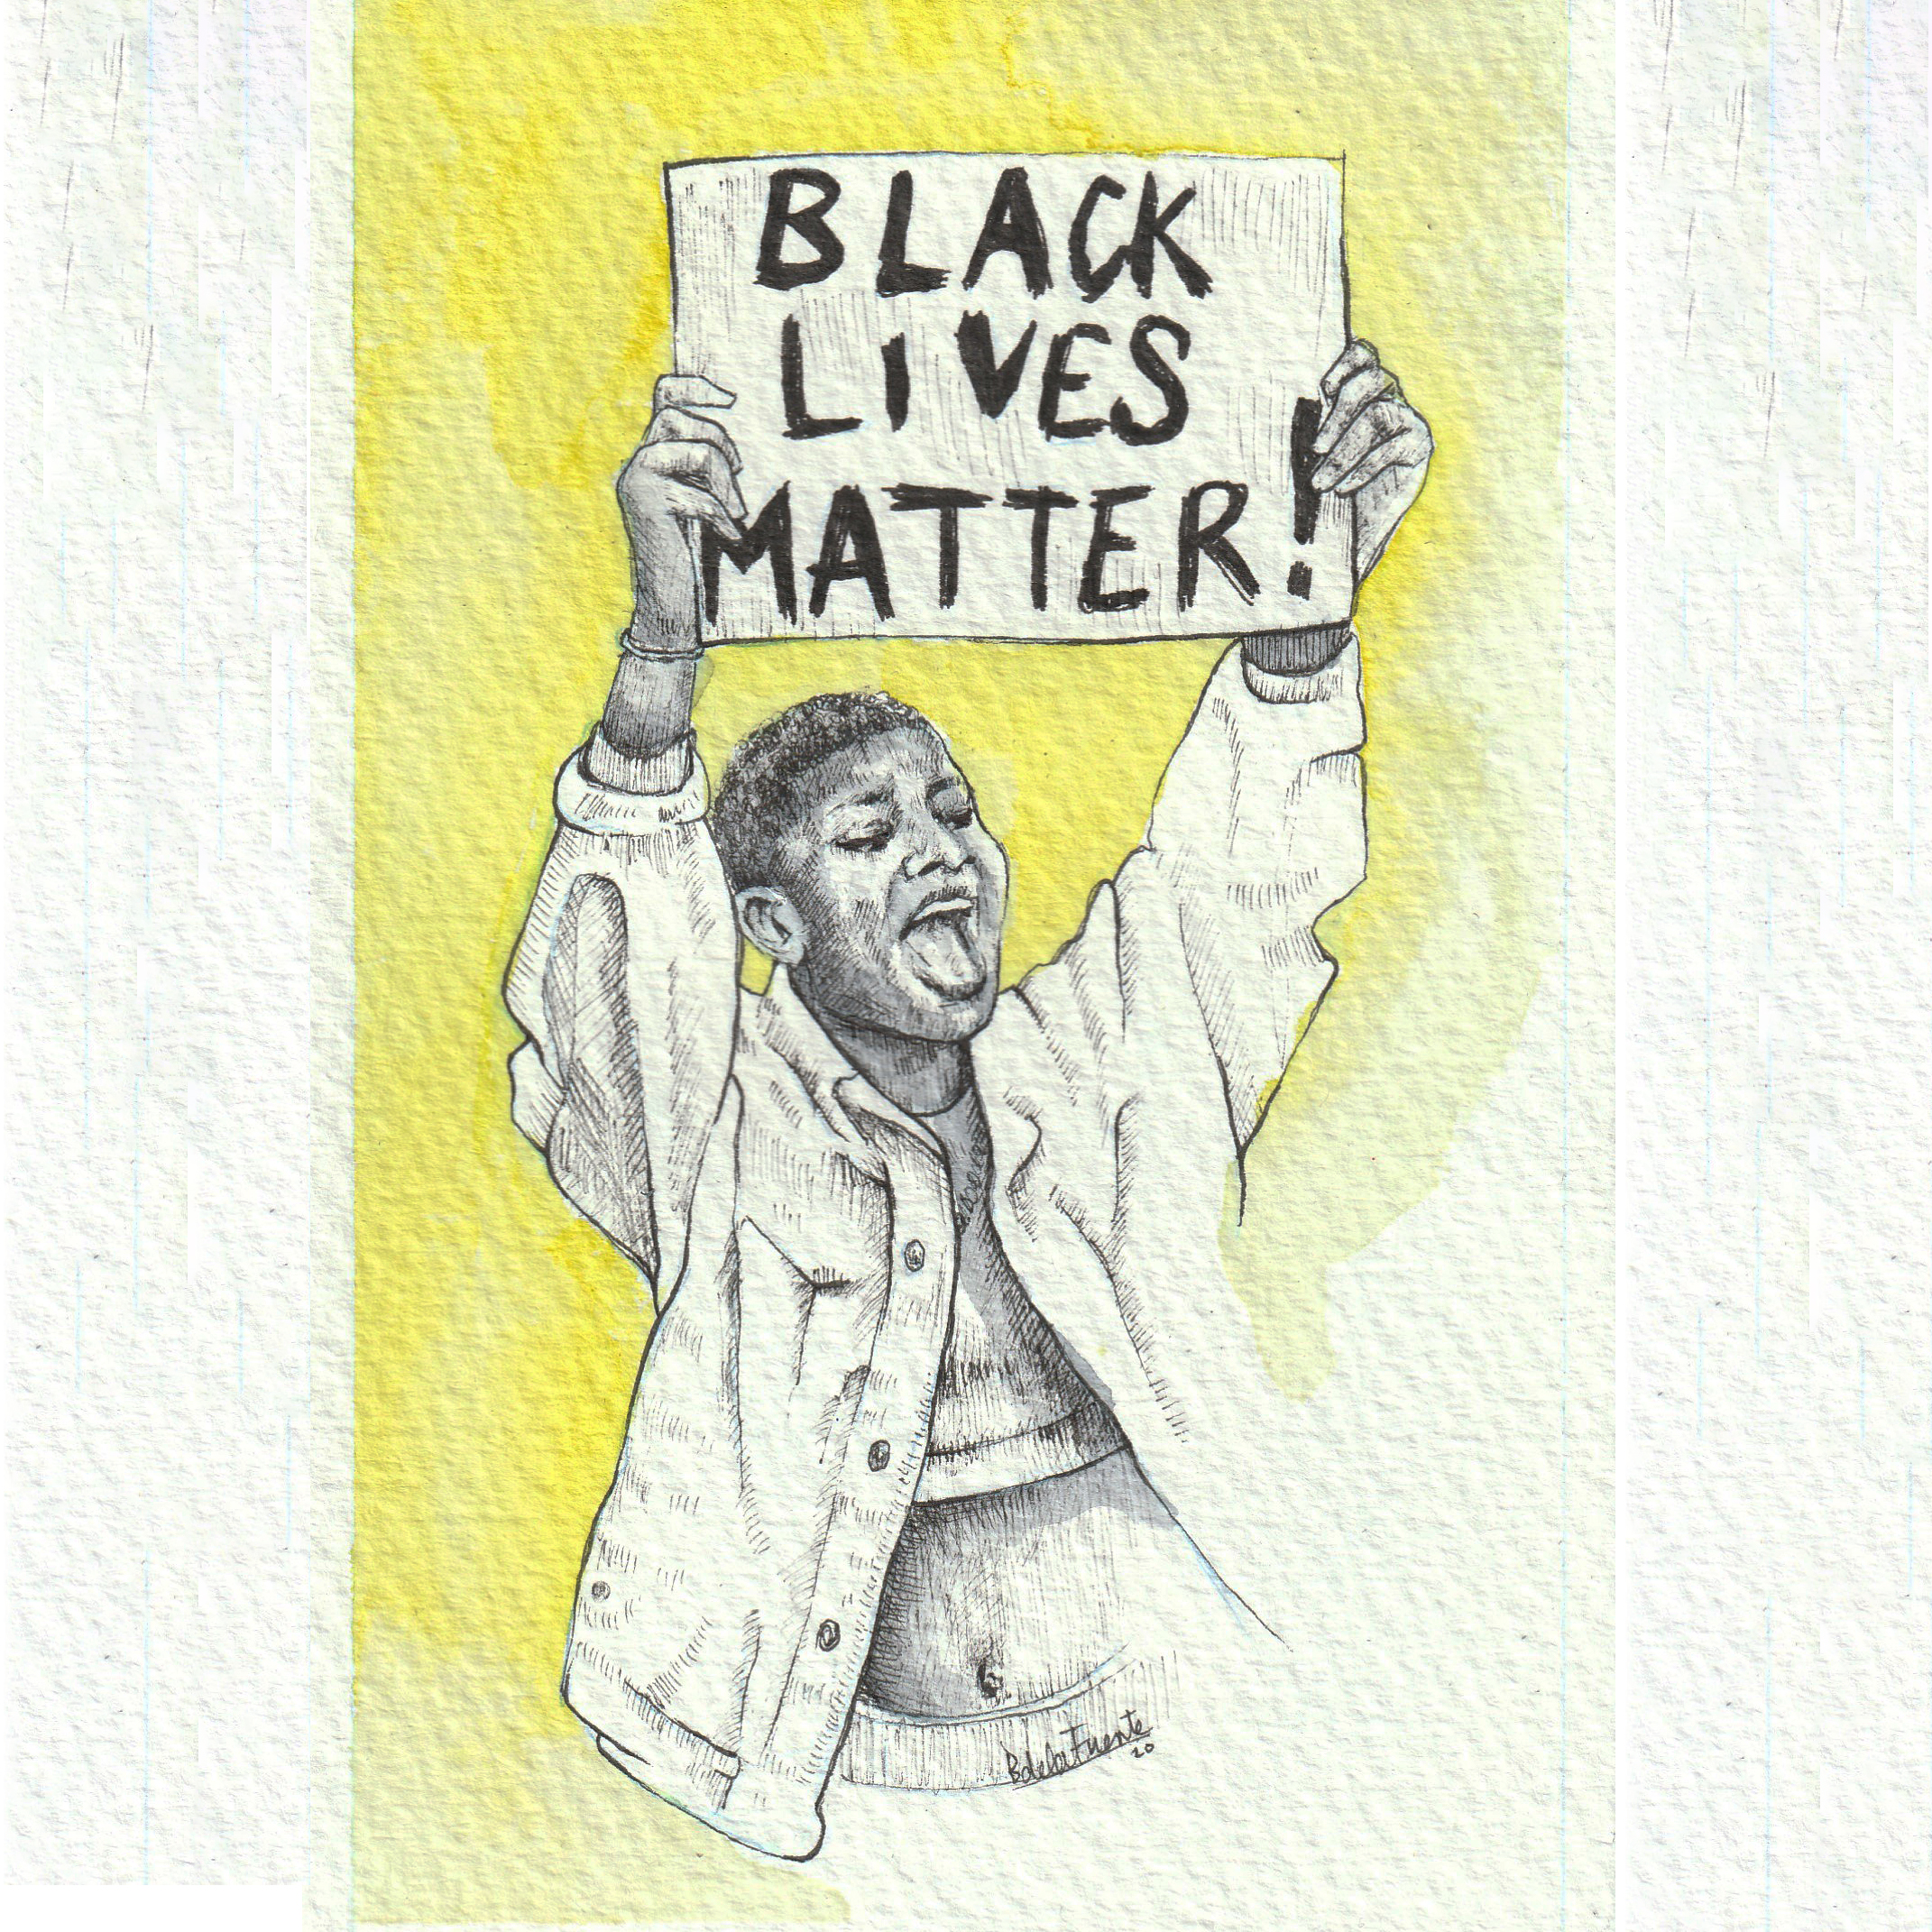 BLACK
LIVES
MATTER!
BdelaFuente
20